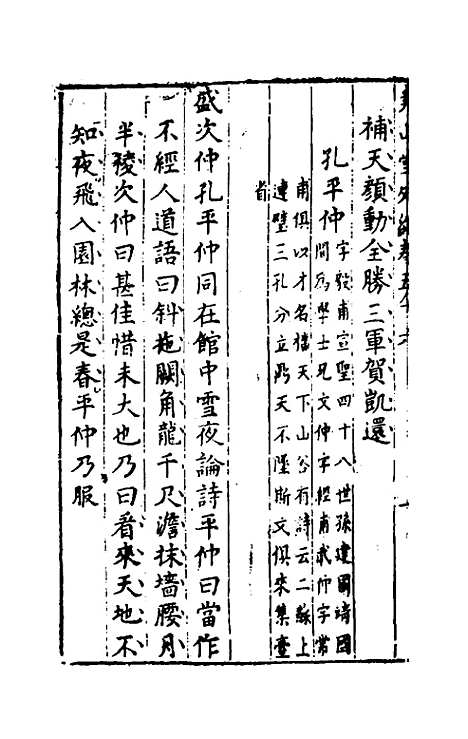 堯山堂外紀卷五
補天顏動全勝三軍賀凱還
孔平仲
字毅甫宣聖四十八世孫建國靖國
間為學士兄文仲字經甫武仲字常
甫俱以才名擅天下山谷有詩云二蘇上
連璧三孔分立鼎天不墜斯文俱來集臺
省
盛次仲孔平仲同在館中雪夜論詩平仲曰當作
不經人道語曰斜拖闕角龍千尺澹抹墻腰月
半稜次仲曰甚佳惜未大也乃曰看來天地不
知夜飛入園林總是春平仲乃服